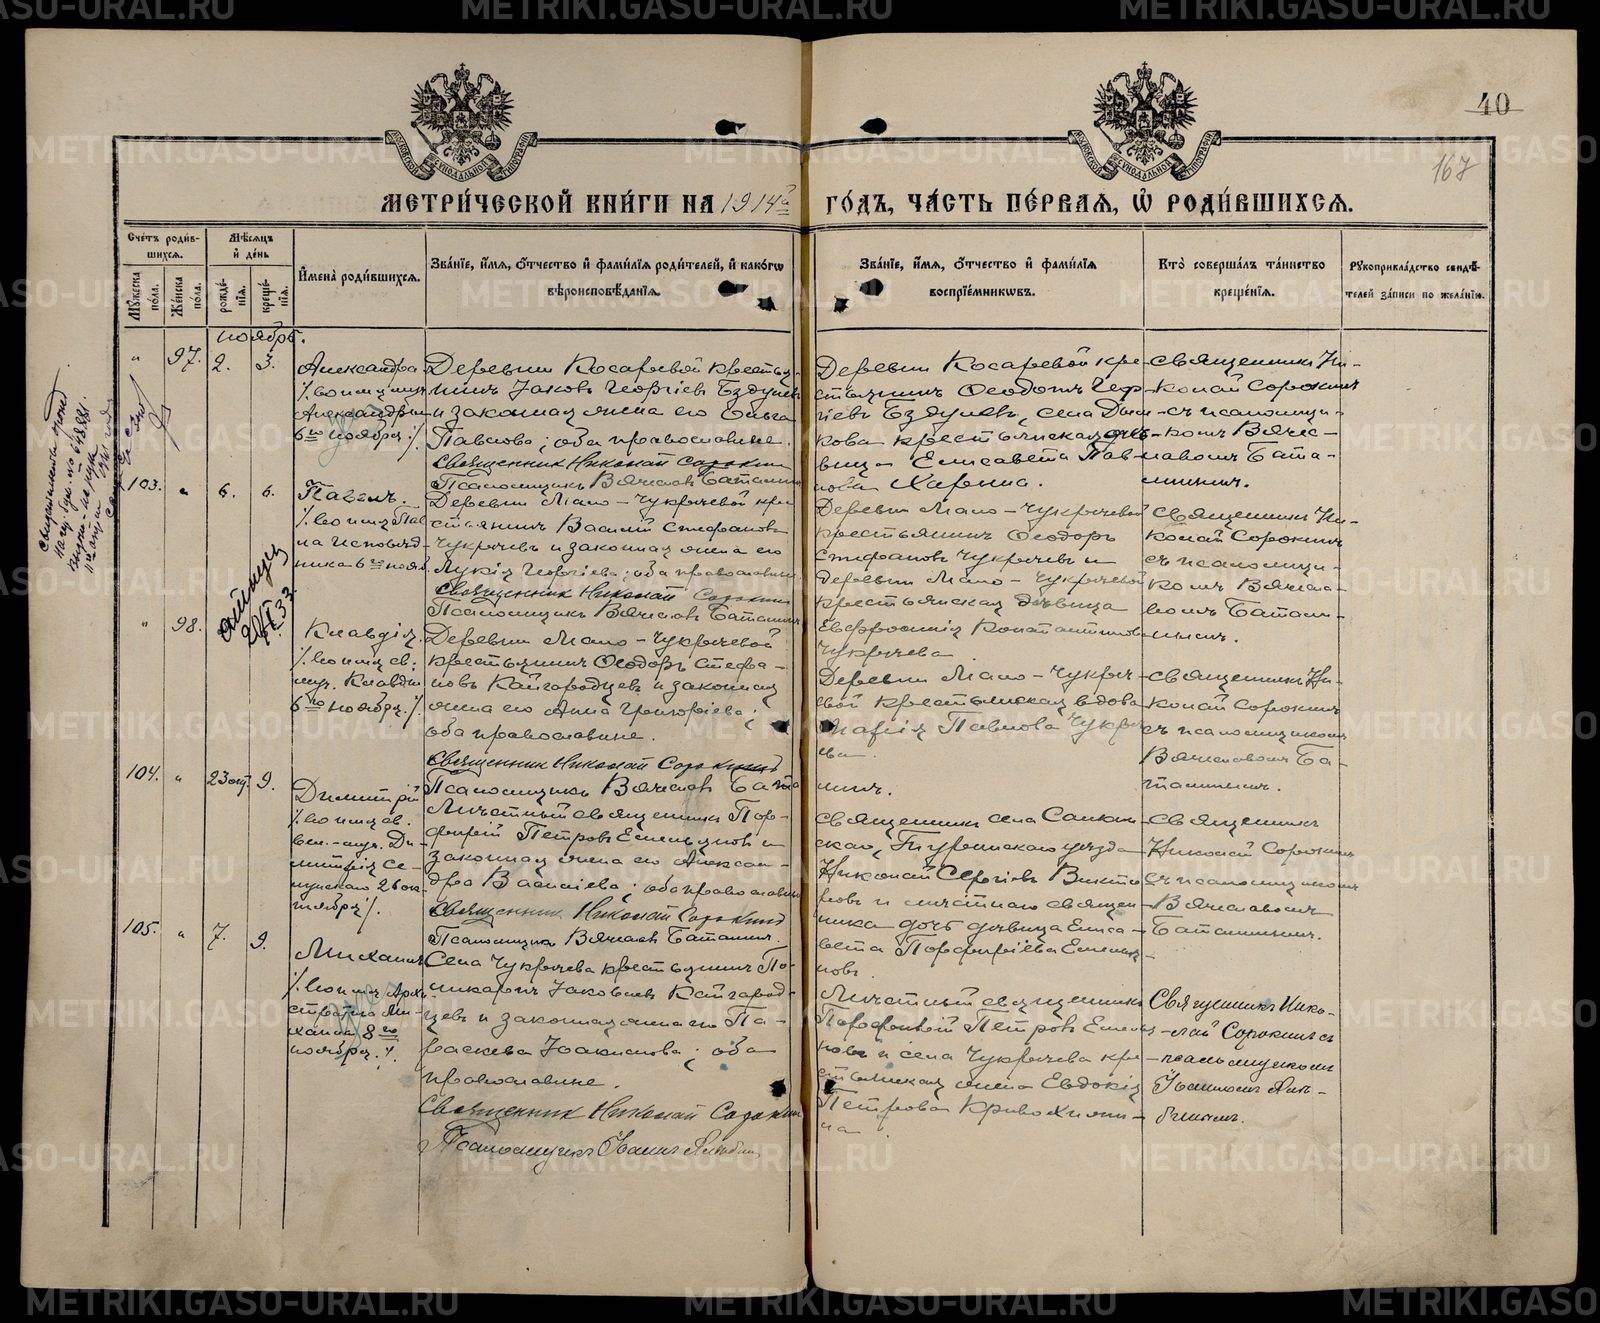 40
167
МЕТРИ́ЧЕСКОЙ КНИ́ГИ НА 1914й ГО́ДЪ, ЧА́СТЬ ПЕ́РВАЯ, Ѡ РОДИ́ВШИХСЯ.
Сче́тъ роди́в-
шихся.
Му́жеска по́ла.
Же́нска по́ла.
Мѣ́сяцъ и де́нь
рожде́нія.
креще́нія.
Имена̀ роди́вшихся.
Зва́ніе, и́мя, о́тчество и фами́лія роди́телей, и како́гѡ
вѣроисповѣ́данія.
Зва́ніе, и́мя, о́тчество и фами́лія
воспріе́мникѡвъ.
Кто̀ соверша́лъ та́инство
креще́нія.
Рукоприкла́дство свидѣ́-
телей за́писи по жела́нію.
ноябрь.
" 97. 2. 3.
Александра
имя муч.
Александры
6го ноября
Деревни Косаревой крестья-
нинъ Іаковъ Георгіевъ Бздулевъ
и законная жена его Ольга
Павлова; оба православные.
Священник Николай Сорокин
Псаломщикъ Вячеслав Баталин
Деревни Косаревой кре-
стьянинъ Ѳеодотъ Геор-
гіевъ Бздулевъ, села
крестьянская дѣ-
вица Елисавета Пав-
лова
Священникъ Ни-
колай Сорокинъ
съ псаломщи-
комъ Вячес-
лавомъ Бата-
линымъ.
103. " 6. 6.
Павелъ.
имя Пав-
ла Исповѣд-
ника 6го нояб.
Деревни Мало-Чукреевой кре-
стьянинъ Василій Стефановъ
Чукреевъ и законная жена его
Лукія Георгіева; оба православные
Священник Николай Сорокин
Псаломщикъ Вячеслав Баталин
Деревни Мало-Чукреевой
крестьянинъ Ѳеодоръ
Стефановъ Чукреевъ и
деревни Мало-Чукреевой
крестьянская дѣвица
Евфросинія Константинова
Чукреева
Священникъ Ни-
колай Сорокинъ
съ псаломщи-
комъ Вячесла-
вомъ Батали-
нымъ.
" 98.
Клавдія.
имя св.
муч. Клавдіи
6го ноября
Деревни Мало-Чукреевой
крестьянинъ Ѳеодоръ Стефа-
новъ Кайгородцевъ и законная
жена его Анна Григоріева;
оба православные.
Священник Николай Сорокинъ
Псаломщикъ Вячеслав Баталин
Деревни Мало-Чукрее-
вой крестьянская вдова
Марія Павлова Чукрее-
ва
Священникъ Ни-
колай Сорокинъ
съ псаломщикомъ
Вячеславомъ Ба-
талинымъ.
104. " 23 окт. 9.
Димитрій
имя св.
вел.-муч. Ди-
митрія Се-
лунскаго 26 ок-
тября
Мѣстный священникъ Пор-
фирій Петровъ Емельяновъ и
законная жена его Алексан-
дра Василіева; оба православные
Священник Николай Сорокинъ
Псаломщикъ Вячеслав Баталин
Священникъ села
Туринскаго уѣзда
Николай Сергіевъ Викто-
ровъ и мѣстнаго священ-
ника дочь дѣвица Елиса-
вета Порфиріева Емелья-
новъ.
Священникъ
Николай Сорокинъ
съ псаломщикомъ
Вячеславомъ
Баталинымъ.
105. " 7. 9.
Михаилъ
имя Архи-
стратига Ми-
хаила 8го
ноября
Села Чукреева крестьянинъ По-
ликарпъ Іаковлевъ Кайгород-
цевъ и законная жена его Па-
раскева Іоакимова; оба
православные.
Священник Николай Сорокин
Псаломщикъ Іоаннъ
Мѣстный священникъ
Порфирій Петровъ Емелья-
новъ и села Чукреева кре-
стьянская жена Евдокія
Петрова
Священникъ Нико-
лай Сорокинъ съ
псаломщикомъ
Іоанномъ